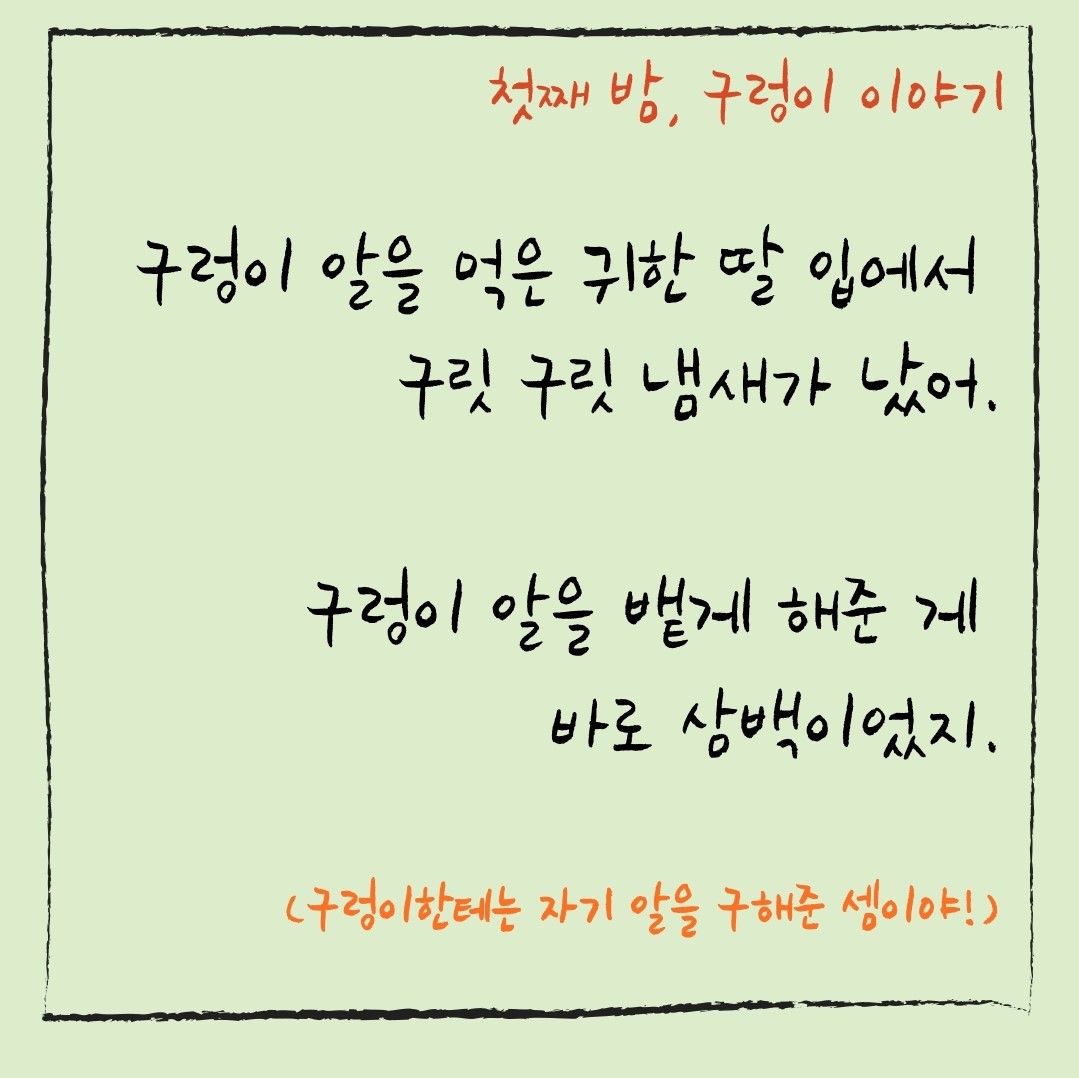 첫째 밤, 구렁이 이야기
구렁이 알을 먹은 귀한 딸 입에서
구릿 구릿 냄새가 났어.
구렁이 알을 뱉게 해준 게
바로 삼백이었지.
(구렁이한테는 자기 알을 구해준 셈이야!)